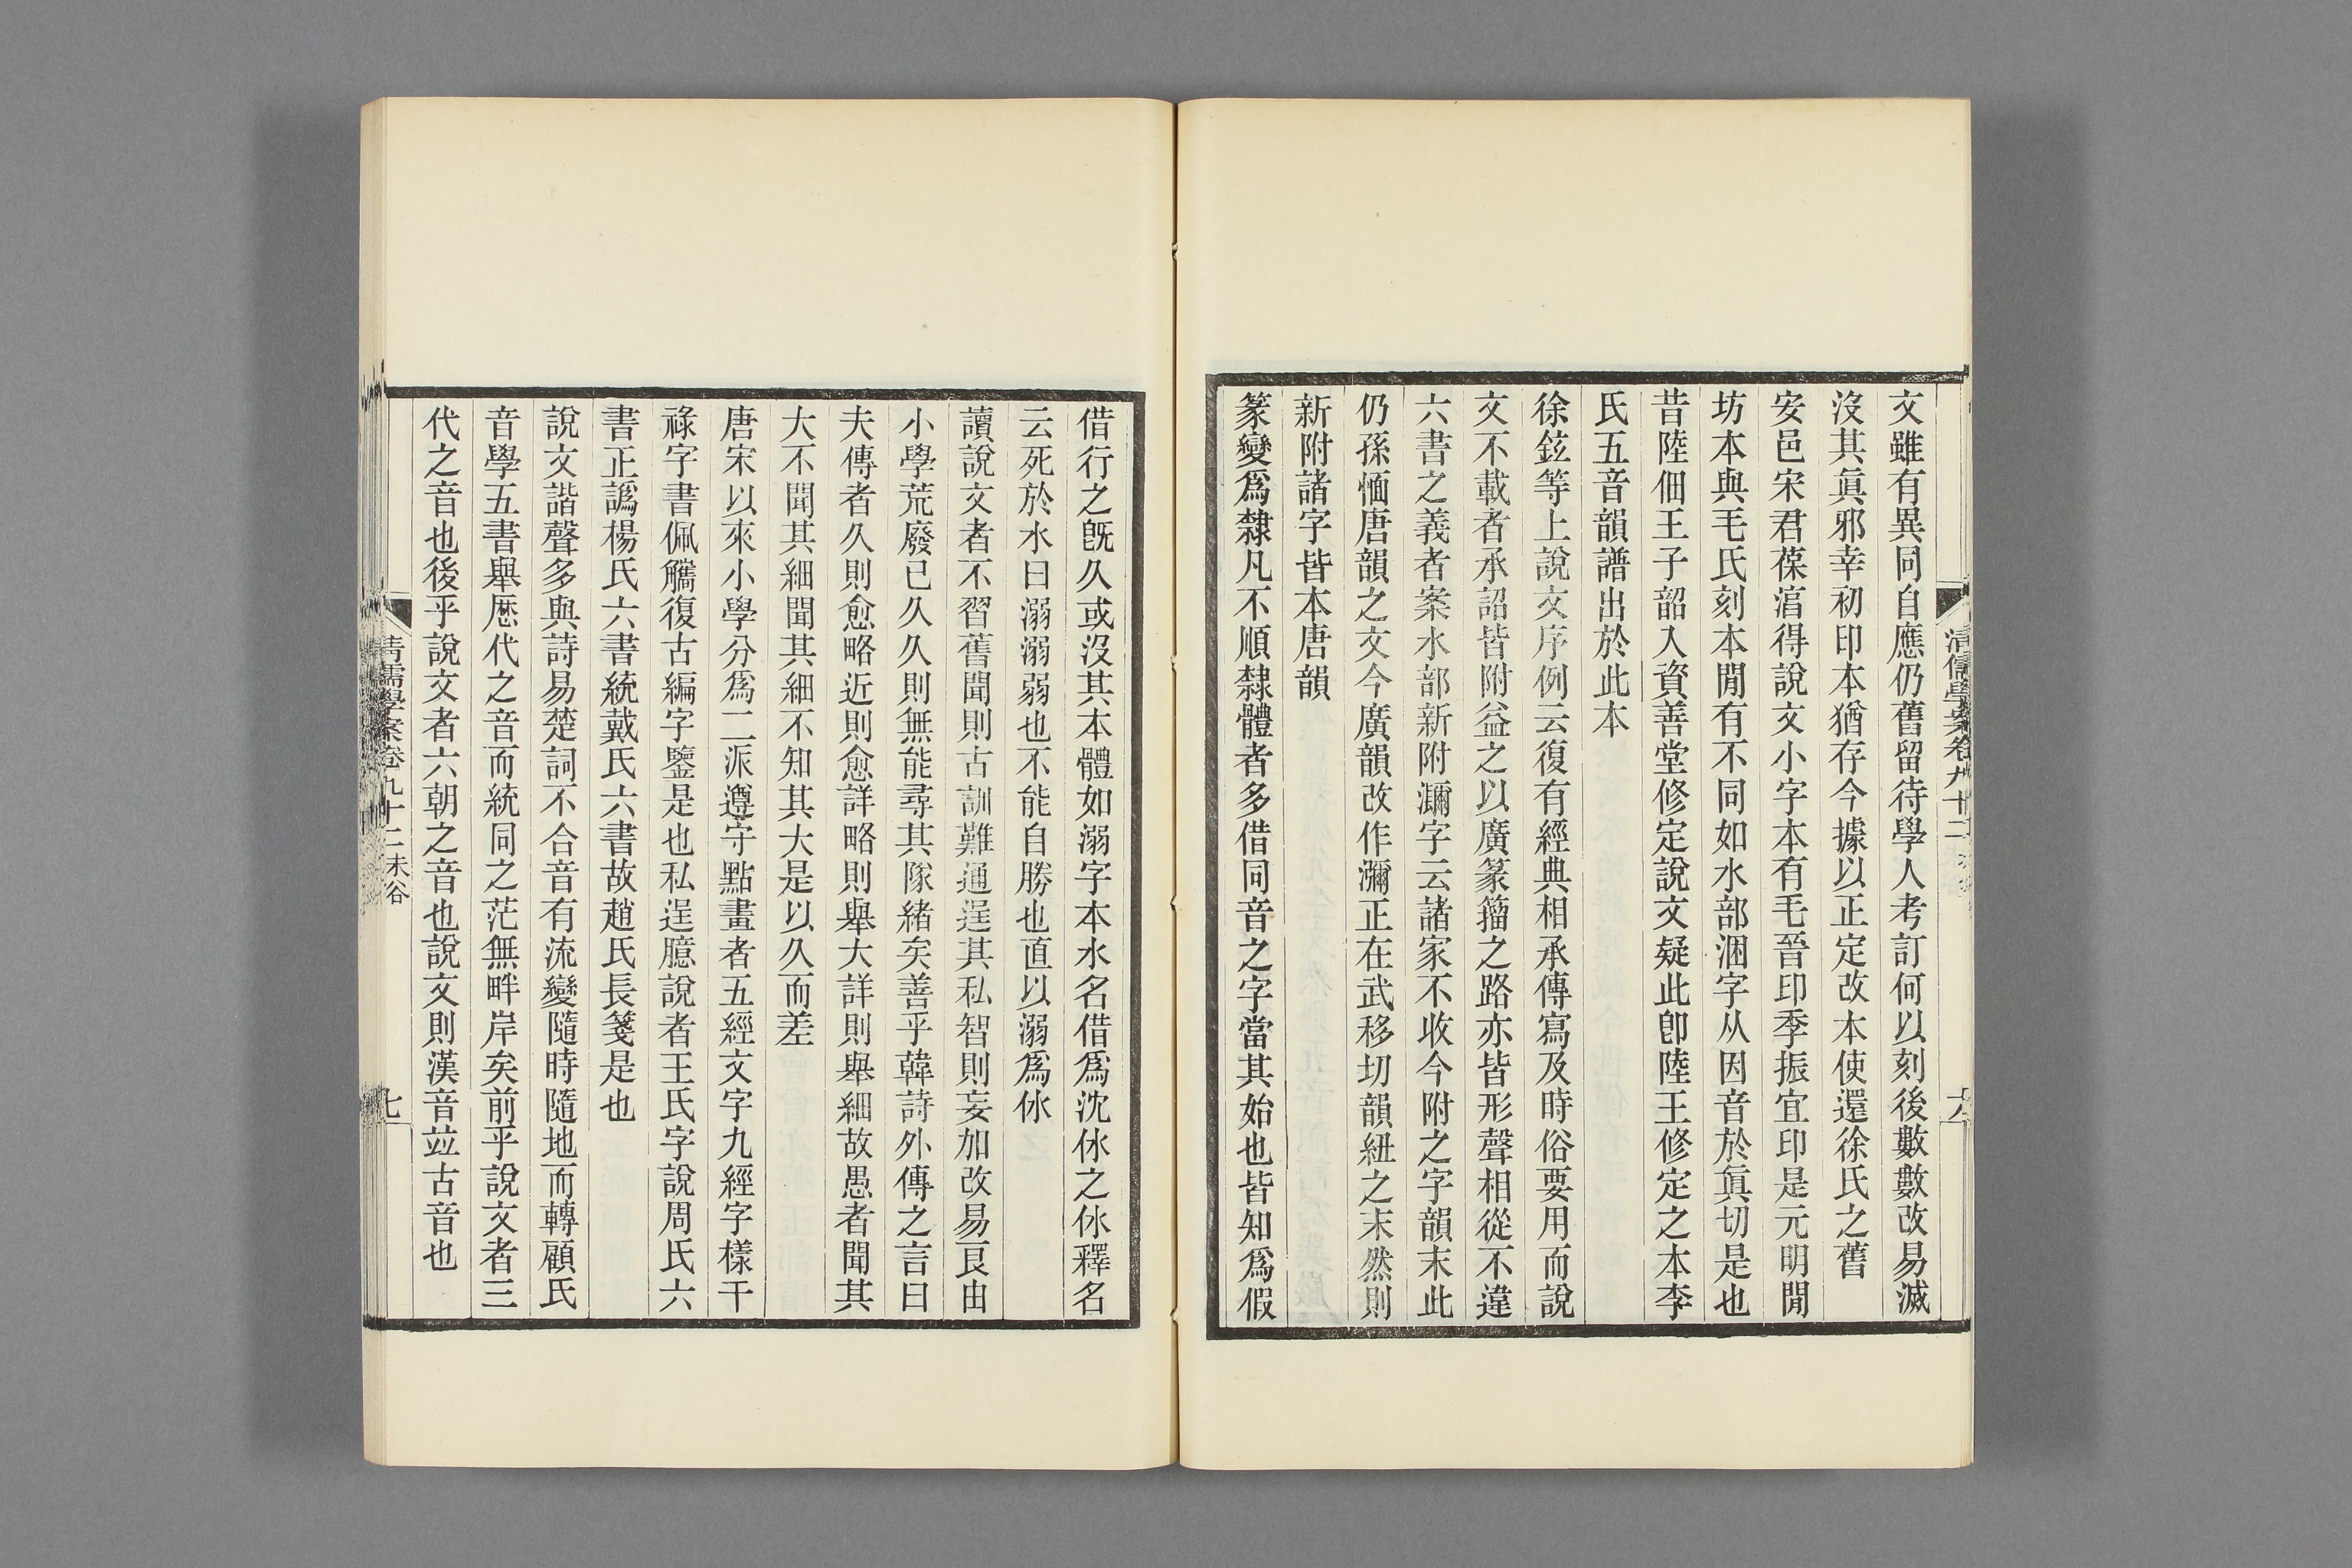 清儒學案卷九十二
六
文雖有異同自應仍舊留待學人考訂何以刻後數數改易滅
沒其眞邪幸初印本猶存今據以正定改本使還徐氏之舊
安邑宋君葆湻得說文小字本有毛晉印季振宜印是元明閒
坊本與毛氏刻本閒有不同如水部溷字从因音於眞切是也
昔陸佃王子韶入資善堂修定說文疑此卽陸王修定之本李
氏五音韻譜出於此本
徐鉉等上說文序例云復有經典相承傳寫及時俗要用而說
文不載者承詔皆附益之以廣篆籀之路亦皆形聲相從不違
六書之義者案水部新附瀰字云諸家不收今附之字韻末此
仍孫愐唐韻之文今廣韻改作瀰正在武移切韻紐之末然則
新附諸字皆本唐韻
篆變爲隸凡不順隸體者多借同音之字當其始也皆知爲假
借行之旣久或沒其本體如溺字本水名借爲沈㲻之㲻釋名
云死於水曰溺溺弱也不能自勝也直以溺爲㲻
讀說文者不習舊聞則古訓難通逞其私智則妄加改易良由
小學荒廢已久久則無能尋其隊緒矣善乎韓詩外傳之言曰
夫傳者久則愈略近則愈詳略則舉大詳則舉細故愚者聞其
大不聞其細聞其細不知其大是以久而差
唐宋以來小學分爲二派遵守點畫者五經文字九經字樣干
祿字書佩觿復古編字鑒是也私逞臆說者王氏字說周氏六
書正譌楊氏六書統戴氏六書故趙氏長箋是也
說文諧聲多與詩易楚詞不合音有流變隨時隨地而轉顧氏
音學五書舉歷代之音而統同之茫無畔岸矣前乎說文者三
代之音也後乎說文者六朝之音也說文則漢音竝古音也
清儒學案卷九十二 未谷
七